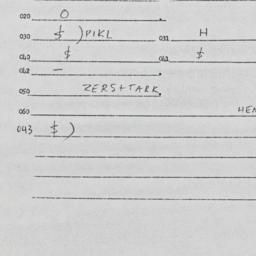 020 O
030 $ )PIKL 033 H
040 $ 043 $
042 –
050 ZERS+TARK
060 HEN
043 $ )